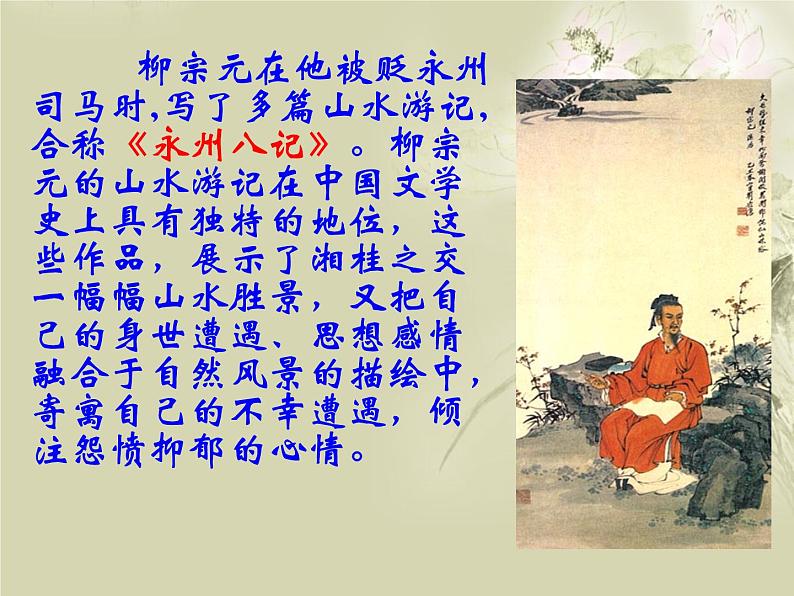 柳宗元在他被贬永州
司马时,写了多篇山水游记,
合称《永州八记》。柳宗
元的山水游记在中国文学
史上具有独特的地位，这
些作品，展示了湘桂之交
一幅幅山水胜景，又把自
己的身世遭遇、思想感情
融合于自然风景的描绘中，
寄寓自己的不幸遭遇，倾
注怨愤抑郁的心情。